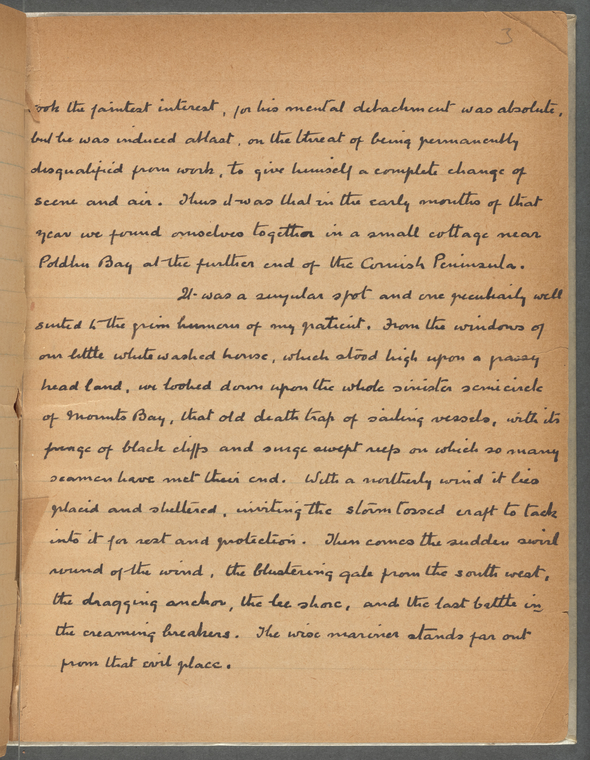 3
ook the faintest interest, for his mental detachment was absolute,
but he was induced at last, on the threat of being permanently
disqualified from work, to give himself a complete change of
scene and air. Thus it was that in the early months of that
year we found ourselves together in a small cottage near
Poldhu Bay at the further end of the Cornish Peninsula.
It was a singular spot and one peculiarly well
suited to the grim humour of my patient. From the windows of
our little whitewashed house, which stood high upon a grassy
head land, we looked down upon the whole sinister semicircle
of Mounts Bay, that old death trap of sailing vessels, with its
fringe of black cliffs and surge swept reefs on which so many
seamen have met their end. With a northerly wind it lies
placid and sheltered, inviting the storm tossed craft to tack
into it for rest and protection. Then comes the sudden swirl
round of the wind, the blustering gale from the south west,
the dragging anchor, the lee shore, and the last battle in
the creaming breakers. The wise mariner stands far out
from that evil place.